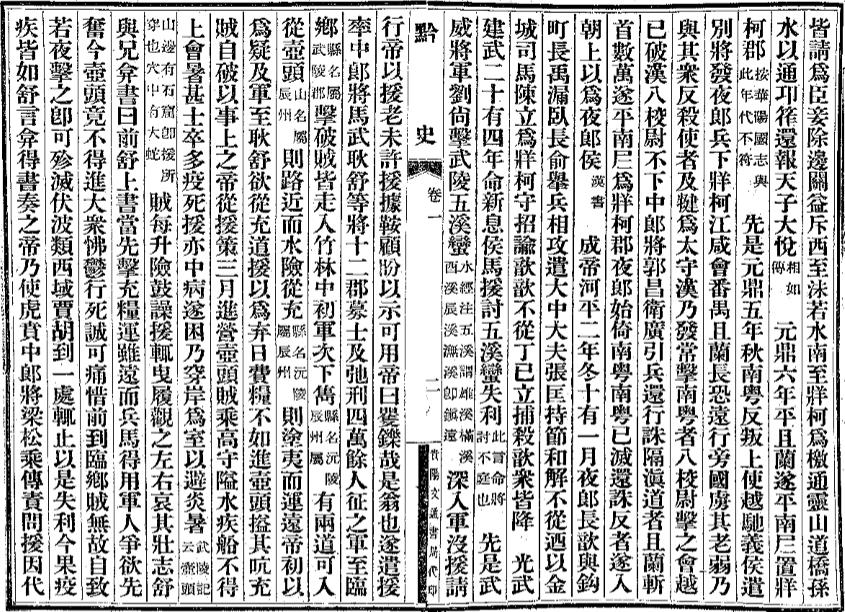 皆請爲臣妾除邊關益斥西至沬若水南至牂柯爲檄通靈山道橋孫
水以通卭筰還報天子大悅相如傳元鼎六年平且蘭遂平南尸置牂
柯郡按華陽國志與此年代不符先是元鼎五年秋南粤反叛上使越馳義侯遺
別將發夜郎兵下牂柯江咸會番禺且蘭長恐遠行旁國虜其老弱乃
與其衆反殺使者及犍爲太守漢乃發常擊南粤者八校尉擊之會越
已破漢八校尉不下中郎將郭昌衛廣引兵還行誅隔滇道者且蘭斬
首數萬遂平南尸爲牂柯郡夜郎始倚南粤南粤已滅還誅反者遂入
朝上以爲夜郎侯漢書成帝河平二年冬十有一月夜郎長歆與鈎
町長禹漏臥長俞舉兵相攻遣大中大夫張匡持節和解不從迺以金
城司馬陳立爲牂柯守招諭歆歆不從丁巳立捕殺歆衆皆降光武
建武二十有四年命新息侯馬援討五溪蠻失利此言命將討不庭也先是武
威將軍劉尚擊武陵五溪蠻水經注五溪謂雄溪樠溪酉溪辰溪潕溪卽鎭遠深入軍沒援請
黔史 卷一 二 貴陽文通書局代印
行帝以援老未許援據鞍顧盼以示可用帝曰矍鑠哉是翁也遂遣援
率中郎將馬武耿舒等將十二郡募士及弛刑四萬餘人征之軍至臨
鄉縣名屬武陵郡擊破賊皆走入竹林中初軍次下雋縣名沅陵辰州屬有兩道可入
從壺頭山名屬辰州則路近而水險從充縣名沅陵屬辰州則塗夷而運遠帝初以
爲疑及軍至耿舒欲從充道援以爲弃日費糧不如進壺頭搤其吭充
賊自破以事上之帝從援策三月進營壺頭賊乘高守隘水疾船不得
上會暑甚士卒多疫死援亦中病遂困乃穿岸爲室以避炎暑武陵記云壺頭
山邊有石窟卽援所穿也穴中有大蛇賊每升險鼓譟援輒曳履觀之左右哀其壯志舒
與兄弇書曰前舒上書當先擊充糧運雖遠而兵馬得用軍人爭欲先
奮今壺頭竟不得進大衆怫鬱行死誠可痛惜前到臨鄉賊無故自致
若夜擊之卽可殄滅伏波類西域賈胡到一處輒止以是失利今果疫
疾皆如舒言弇得書奏之帝乃使虎賁中郎將梁松乘傳責問援因代